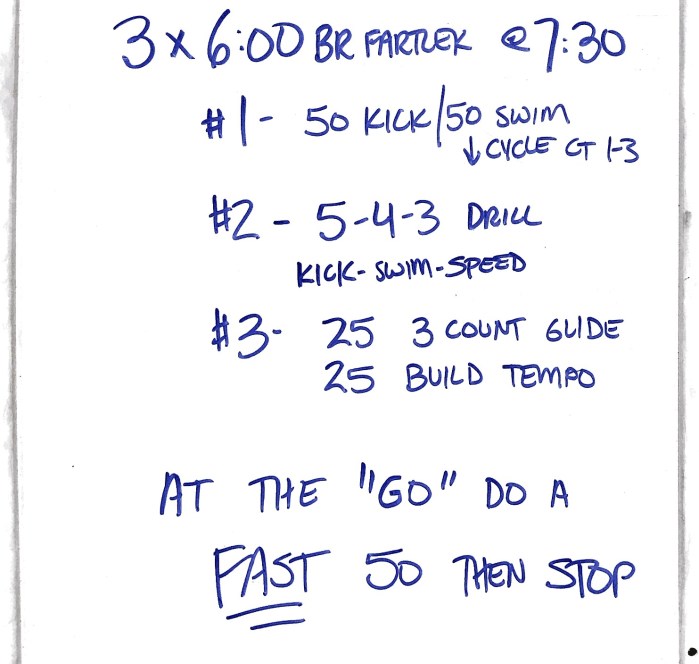 3 x 6:00 BR FARTLEK @ 7:30
#1 - 50 KICK/50 SWIM
↓ CYCLE GT 1-3
#2 - 5-4-3 DRILL
KICK-SWIM-SPEED
#3- 25 3 COUNT GLIDE
25 BUILD TEMPO
AT THE "GO" DO A
FAST 50 THEN STOP